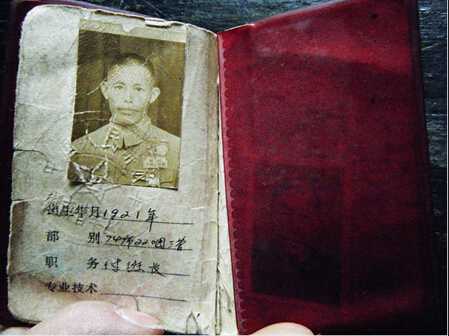 出生年月1921年
部 别 220团三营
职 务 付班长
专业技术